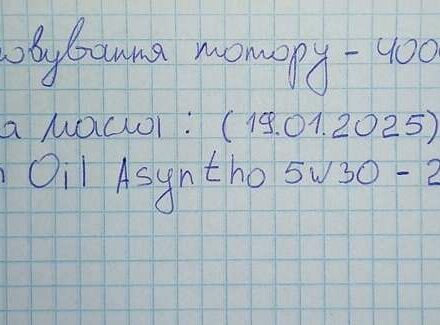 овування мотору - 400
а масла : (19.01.2025)
n Oil Asyntho 5W30 - 2